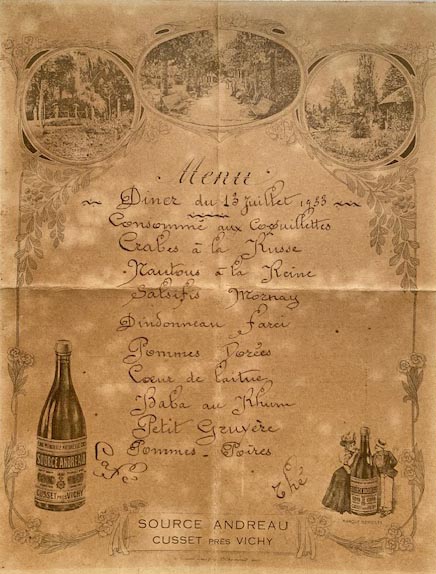 Menu
Dîner du 13 Juillet 1953
Consommé aux Coquillettes
Crabes à la Russe
Nautous à la Reine
Salsifis Mornay
Dindonneau Farci
Pommes Dorées
Cœur de laitue
Baba au Rhum
Petit Gruyère
Pommes - Poires
Cafés
Thé
SOURCE ANDREAU
CUSSET PRÈS VICHY
SOURCE ANDREAU
CUSSET PRÈS VICHY